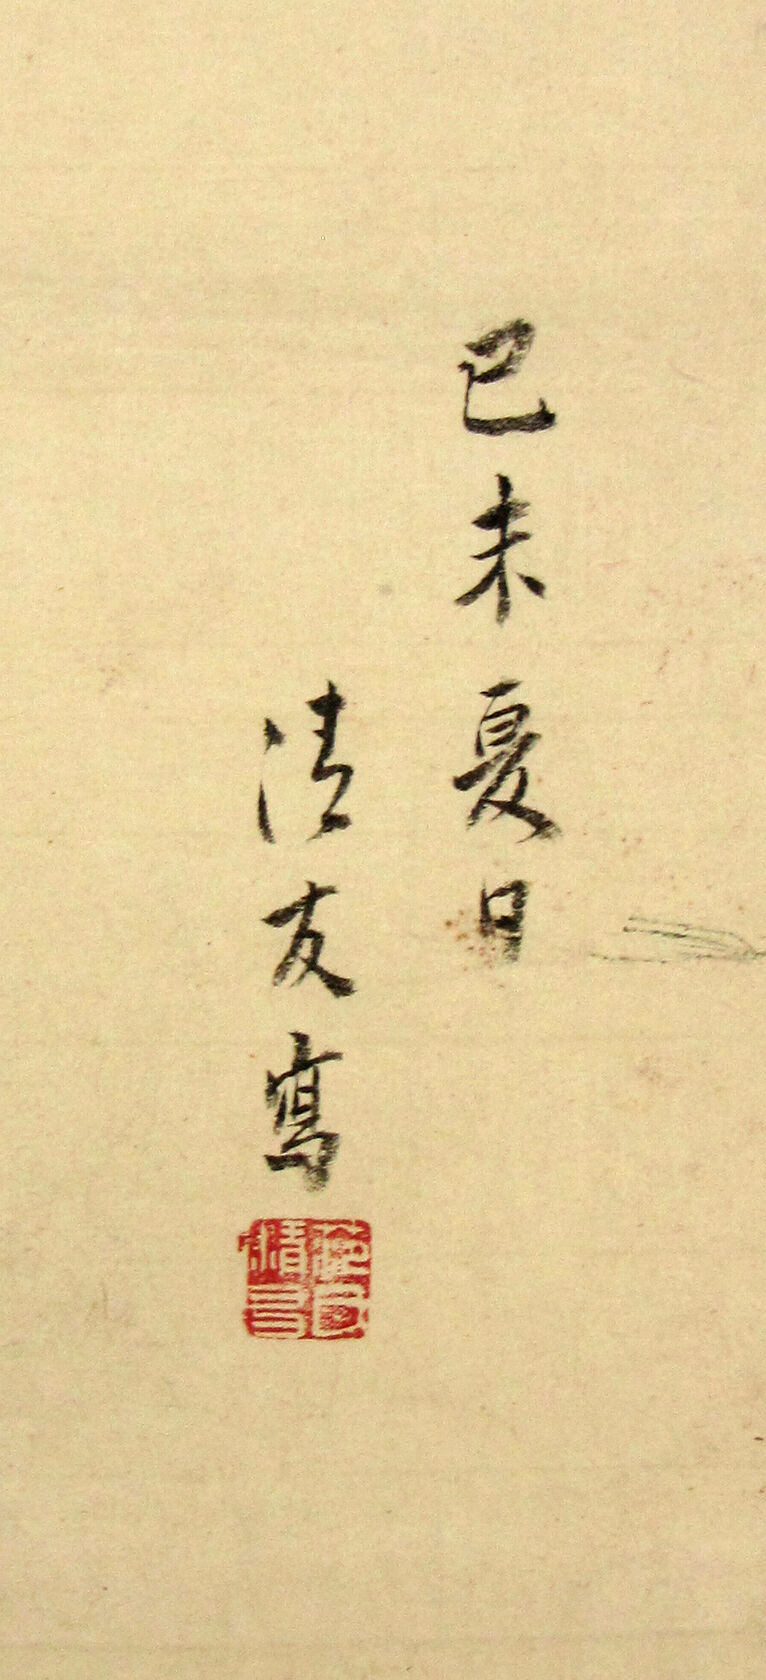 己未夏日
清友寫